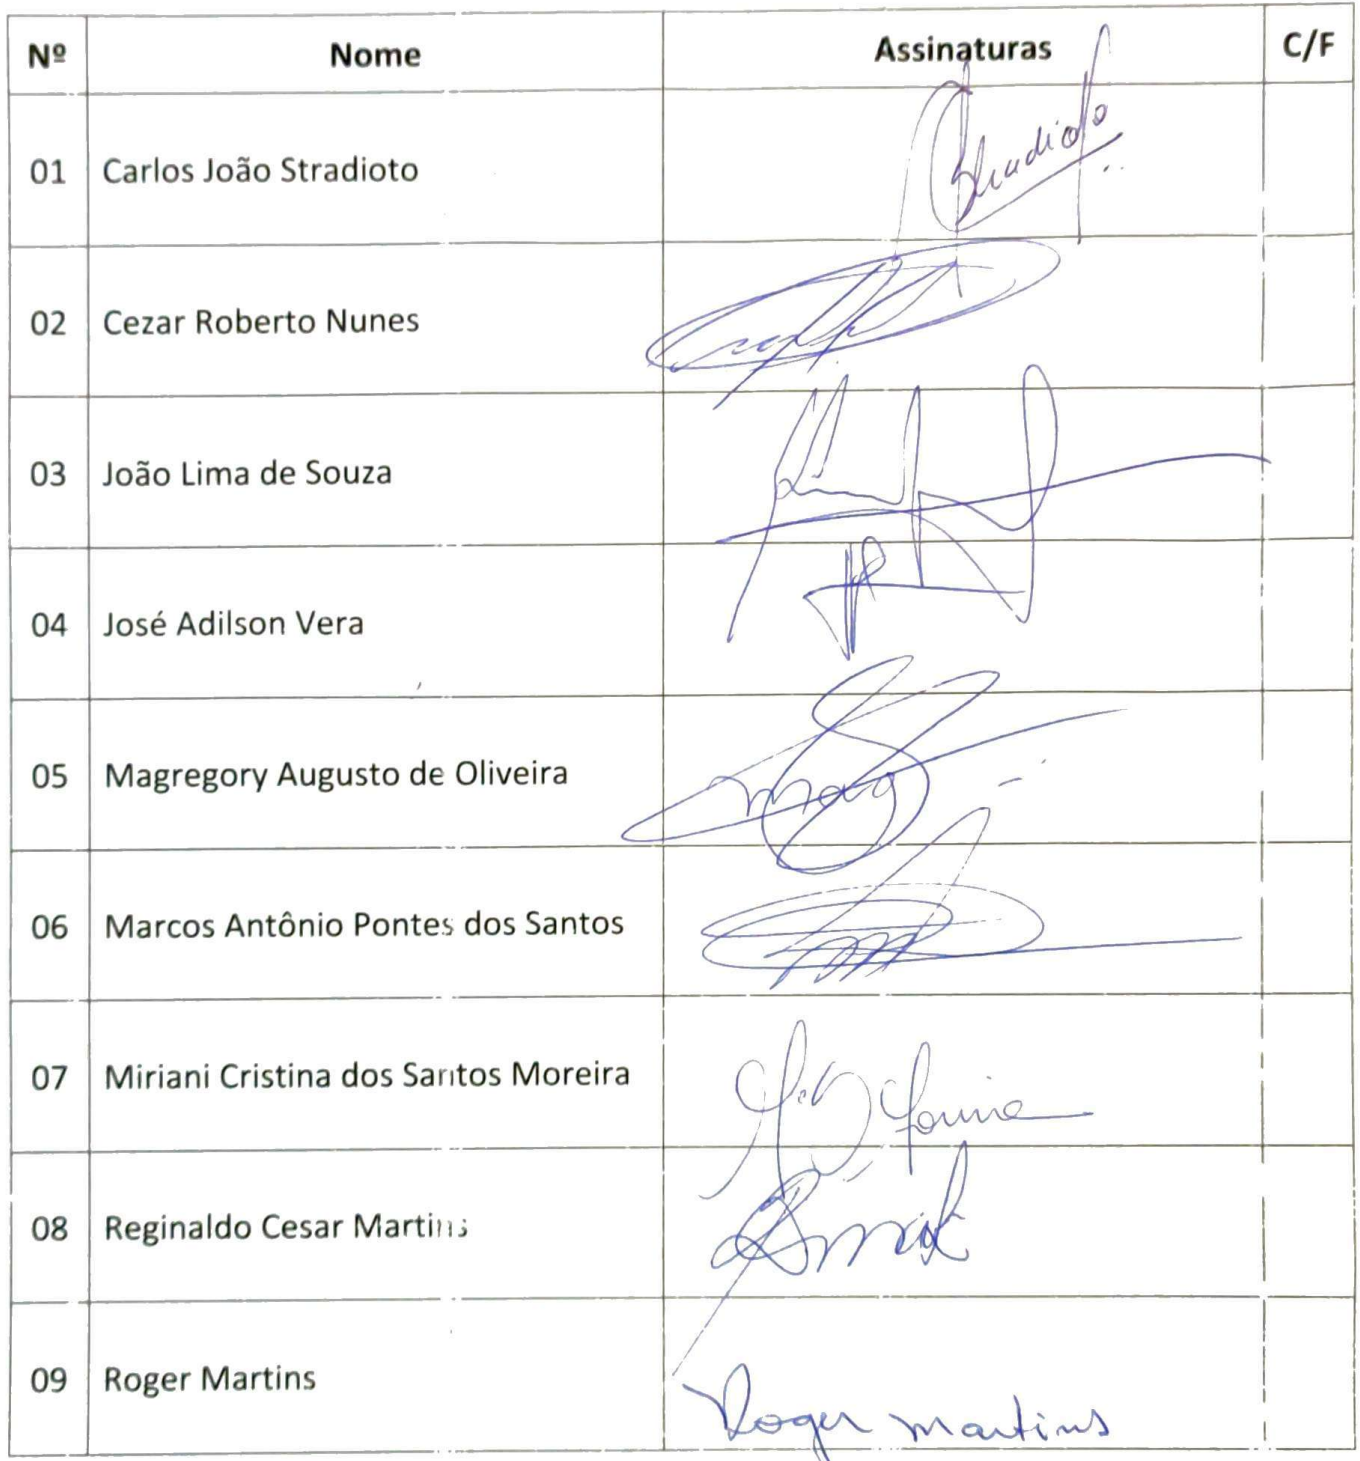 Nº Nome Assinaturas C/F
01 Carlos João Stradioto Stradioto
02 Cezar Roberto Nunes
03 João Lima de Souza
04 José Adilson Vera
05 Magregory Augusto de Oliveira Mag
06 Marcos Antônio Pontes dos Santos
07 Miriani Cristina dos Santos Moreira
08 Reginaldo Cesar Martins
09 Roger Martins Roger Martins